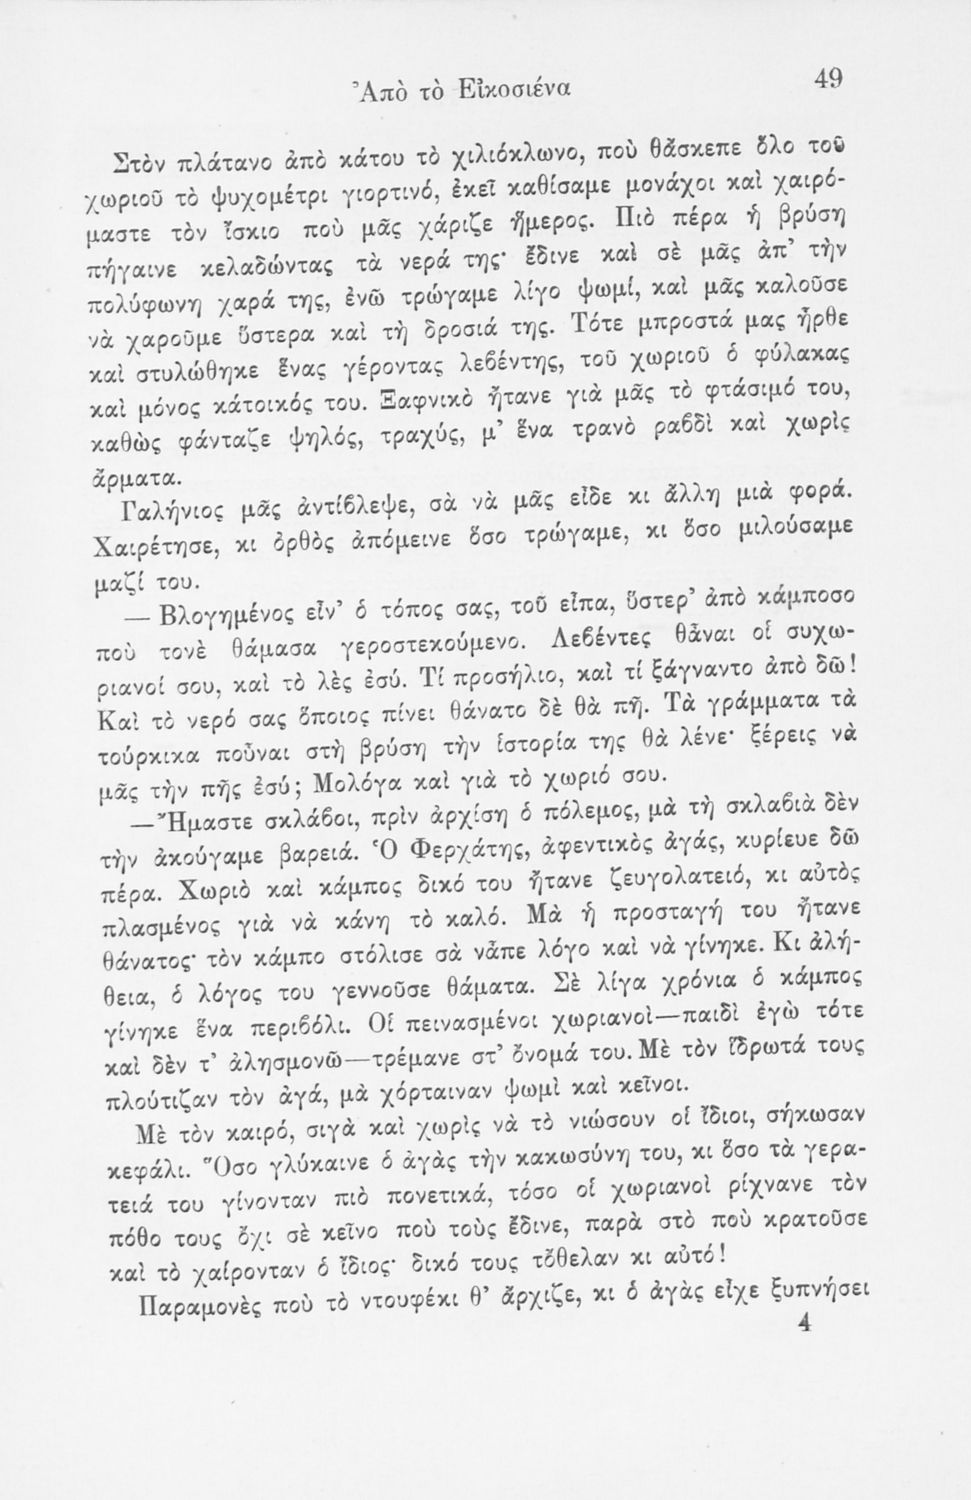 Ἀπὸ τὸ Εἰκοσιένα
49
Στὸν πλάτανο ἀπὸ κάτου τὸ χιλιόκλωνο, ποὺ θἄσκεπε ὅλο τοῦ
χωριοῦ τὸ ψυχομέτρι γιορτινό, ἐκεῖ καθίσαμε μονάχοι καὶ χαιρό-
μαστε τὸν ἴσκιο ποὺ μᾶς χάριζε ἥμερος. Πιὸ πέρα ἡ βρύση
πήγαινε κελαδώντας τὰ νερά της· ἔδινε καὶ σὲ μᾶς ἀπ’ τὴν
πολύφωνη χαρά της, ἐνῶ τρώγαμε λίγο ψωμί, καὶ μᾶς καλοῦσε
νὰ χαροῦμε ὕστερα καὶ τὴ δροσιά της. Τότε μπροστά μας ἦρθε
καὶ στυλώθηκε ἕνας γέροντας λεβέντης, τοῦ χωριοῦ ὁ φύλακας
καὶ μόνος κάτοικός του. Ξαφνικὸ ἤτανε γιὰ μᾶς τὸ φτάσιμό του,
καθὼς φάνταζε ψηλός, τραχύς, μ’ ἕνα τρανὸ ραβδὶ καὶ χωρὶς
ἅρματα.
Γαλήνιος μᾶς ἀντίβλεψε, σὰ νὰ μᾶς εἶδε κι ἄλλη μιὰ φορά.
Χαιρέτησε, κι ὀρθὸς ἀπόμεινε ὅσο τρώγαμε, κι ὅσο μιλούσαμε
μαζί του.
— Βλογημένος εἶν’ ὁ τόπος σας, τοῦ εἶπα, ὕστερ’ ἀπὸ κάμποσο
ποὺ τονὲ θάμασα γεροστεκούμενο. Λεβέντες θἆναι οἱ συχω-
ριανοί σου, καὶ τὸ λὲς ἐσύ. Τί προσήλιο, καὶ τί ξάγναντο ἀπὸ δῶ!
Καὶ τὸ νερό σας ὅποιος πίνει θάνατο δὲ θὰ πῆ. Τὰ γράμματα τὰ
τούρκικα ποὖναι στὴ βρύση τὴν ἱστορία της θὰ λένε· ξέρεις νὰ
μᾶς τὴν πῆς ἐσύ; Μολόγα καὶ γιὰ τὸ χωριό σου.
—Ἤμαστε σκλάβοι, πρὶν ἀρχίση ὁ πόλεμος, μὰ τὴ σκλαβιὰ δὲν
τὴν ἀκούγαμε βαρειά. Ὁ Φερχάτης, ἀφεντικὸς ἀγάς, κυρίευε δῶ
πέρα. Χωριὸ καὶ κάμπος δικό του ἤτανε ζευγολατειό, κι αὐτὸς
πλασμένος γιὰ νὰ κάνη τὸ καλό. Μὰ ἡ προσταγή του ἤτανε
θάνατος· τὸν κάμπο στόλισε σὰ νἆπε λόγο καὶ νὰ γίνηκε. Κι ἀλή-
θεια, ὁ λόγος του γεννοῦσε θάματα. Σὲ λίγα χρόνια ὁ κάμπος
γίνηκε ἕνα περιβόλι. Οἱ πεινασμένοι χωριανοὶ—παιδὶ ἐγὼ τότε
καὶ δὲν τ’ ἀλησμονῶ—τρέμανε στ’ ὄνομά του. Μὲ τὸν ἵδρωτά τους
πλούτιζαν τὸν ἀγά, μὰ χόρταιναν ψωμὶ καὶ κεῖνοι.
Μὲ τὸν καιρό, σιγὰ καὶ χωρὶς νὰ τὸ νιώσουν οἱ ἴδιοι, σήκωσαν
κεφάλι. Ὅσο γλύκαινε ὁ ἀγὰς τὴν κακωσύνη του, κι ὅσο τὰ γερα-
τειά του γίνονταν πιὸ πονετικά, τόσο οἱ χωριανοὶ ρίχνανε τὸν
πόθο τους ὄχι σὲ κεῖνο ποὺ τοὺς ἔδινε, παρὰ στὸ ποὺ κρατοῦσε
καὶ τὸ χαίρονταν ὁ ἴδιος· δικό τους τὄθελαν κι αὐτό!
Παραμονὲς ποὺ τὸ ντουφέκι θ’ ἄρχιζε, κι ὁ ἀγὰς εἶχε ξυπνήσει
4